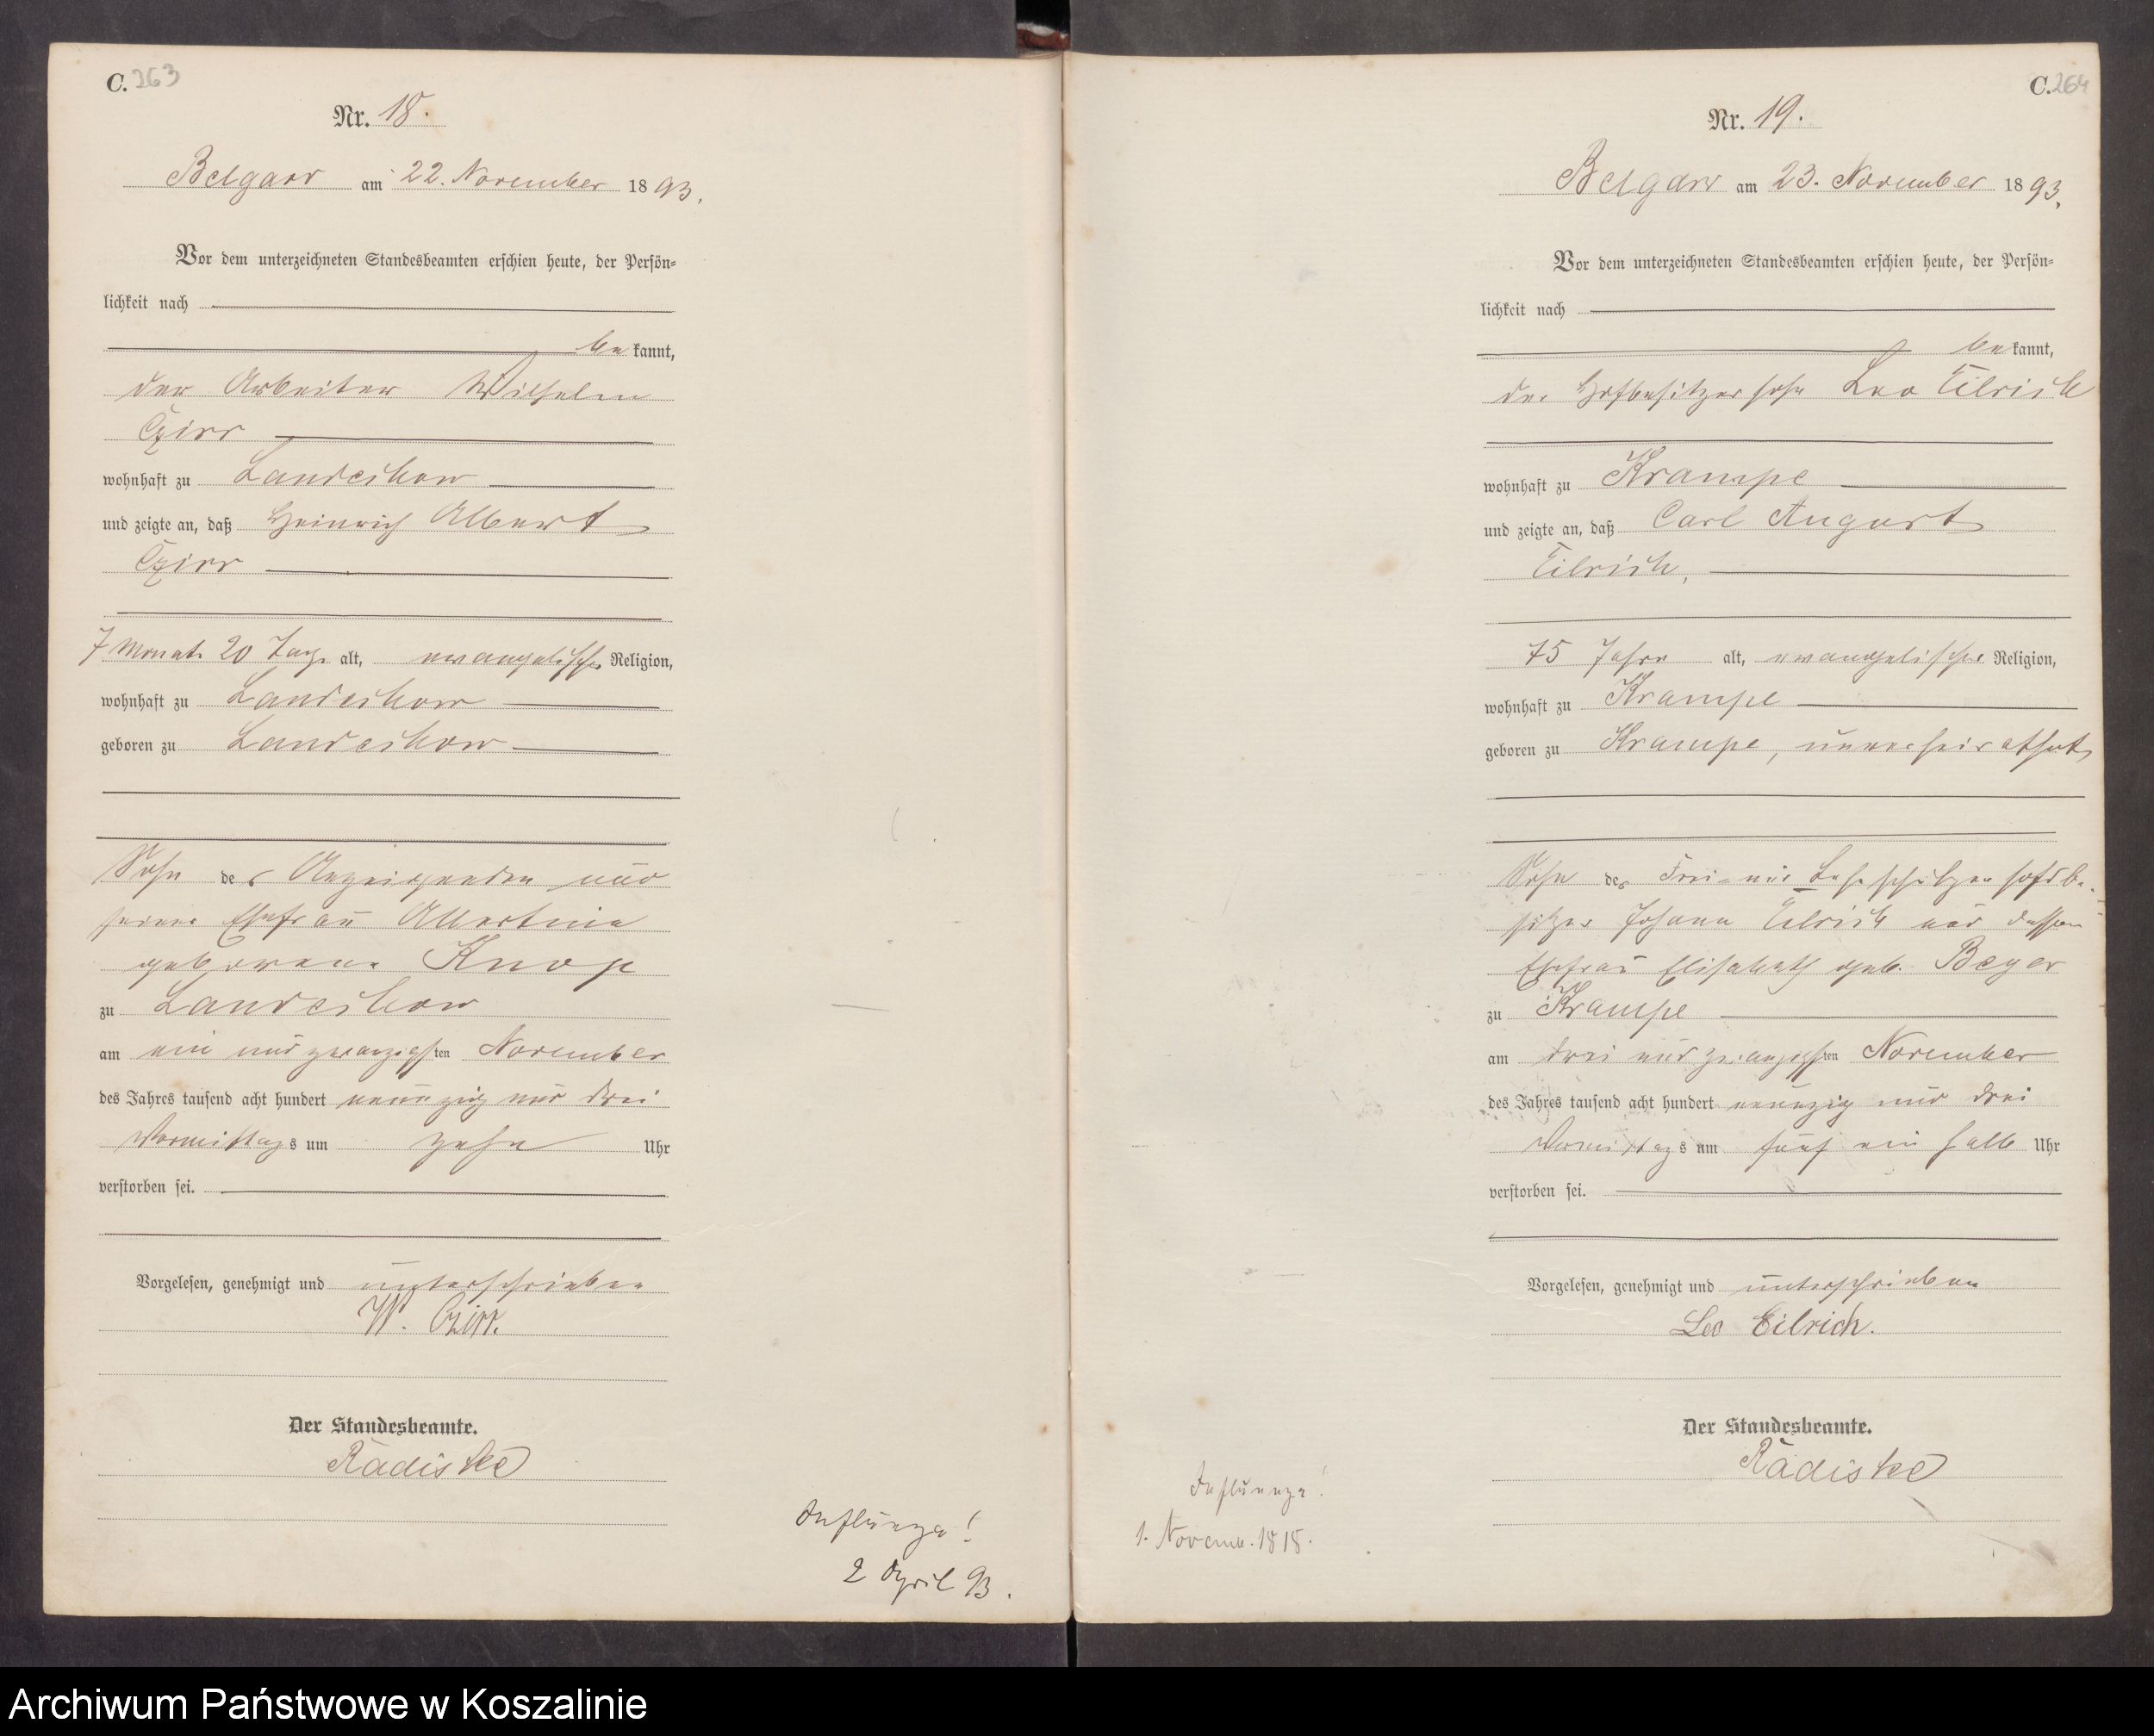 C. 263
Nr. 18.
Belgard am 22. November 1893.
Vor dem unterzeichneten Standesbeamten erschien heute, der Persön-
lichkeit nach
be kannt,
der Arbeiter Wilhelm
Czirr
wohnhaft zu Landechow
und zeigte an, daß Heinrich Albert
Czirr
7 Monate 20 Tage alt, evangelischer Religion,
wohnhaft zu Landechow
geboren zu Landechow
Sohn des Anzeigenden und
seiner Ehefrau Albertine
geborene Knop
zu Landechow
am ein und zwanzigsten November
des Jahres tausend acht hundert neunzig und drei
Vormittags um zehn Uhr
verstorben sei.
Vorgelesen, genehmigt und unterschrieben
W. Czirr.
Der Standesbeamte.
Radiske
Influenza!
2 April 93.
C. 264
Nr. 19.
Belgard am 23. November 1893.
Vor dem unterzeichneten Standesbeamten erschien heute, der Persön-
lichkeit nach
be kannt,
der Hofbesitzersohn Leo Eilrich
wohnhaft zu Krampe
und zeigte an, daß Carl August
Eilrich,
75 Jahre alt, evangelischer Religion,
wohnhaft zu Krampe
geboren zu Krampe, unverheirathet,
Sohn des Frei- und hofbe-
sitzer Johann Eilrich und dessen
Ehefrau Elisabeth geb. Beyer
zu Krampe
am drei und zwanzigsten November
des Jahres tausend acht hundert neunzig und drei
Vormittags um fünf ein halb Uhr
verstorben sei.
Vorgelesen, genehmigt und unterschrieben
Leo Eilrich.
Der Standesbeamte.
Radiske
Influenza!
1. Novemb. 1818.
Archiwum Państwowe w Koszalinie